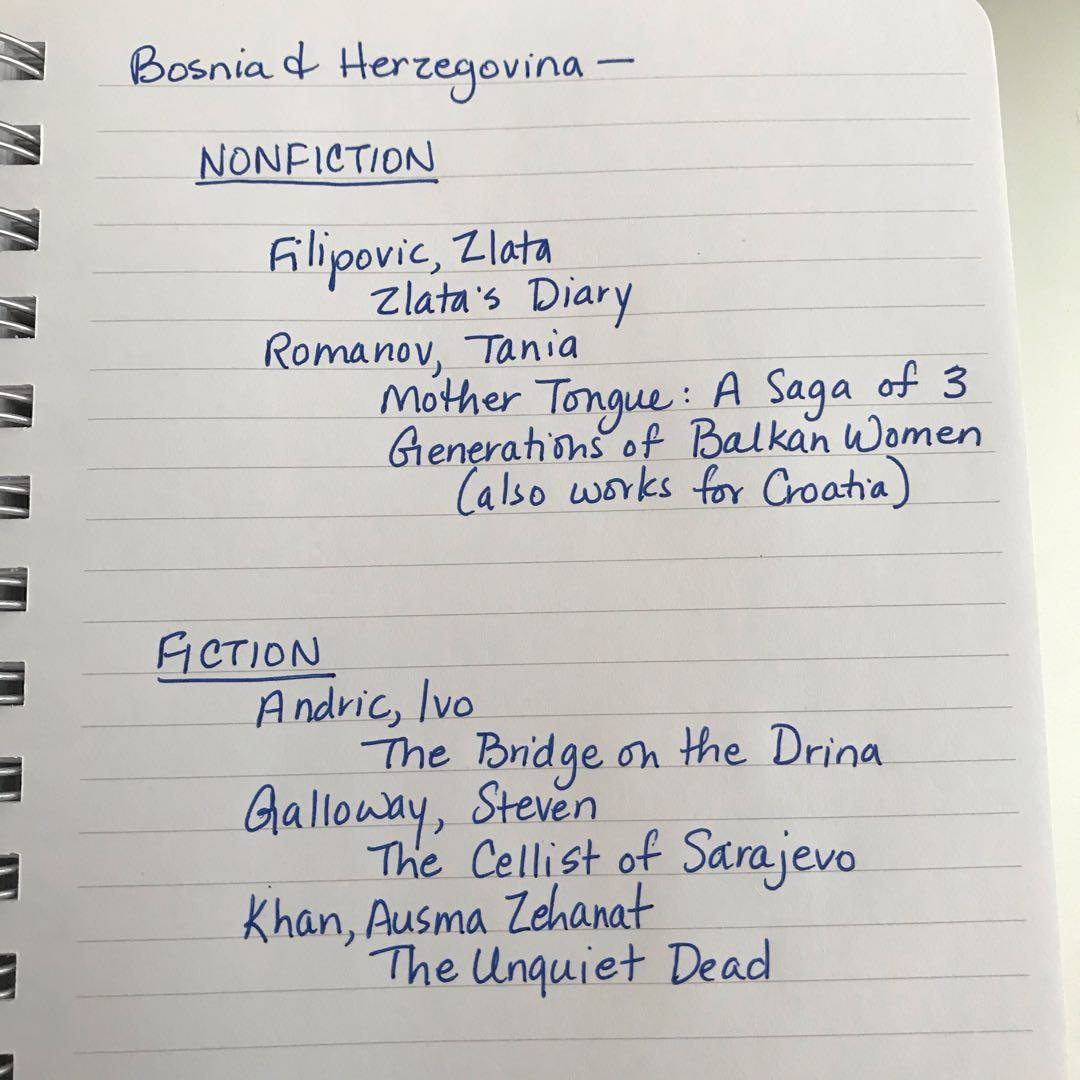 Bosnia & Herzegovina —
NONFICTION
Filipovic, Zlata
Zlata's Diary
Romanov, Tania
Mother Tongue: A Saga of 3
Generations of Balkan Women
(also works for Croatia)
FICTION
Andric, Ivo
The Bridge on the Drina
Galloway, Steven
The Cellist of Sarajevo
Khan, Ausma Zehanat
The Unquiet Dead